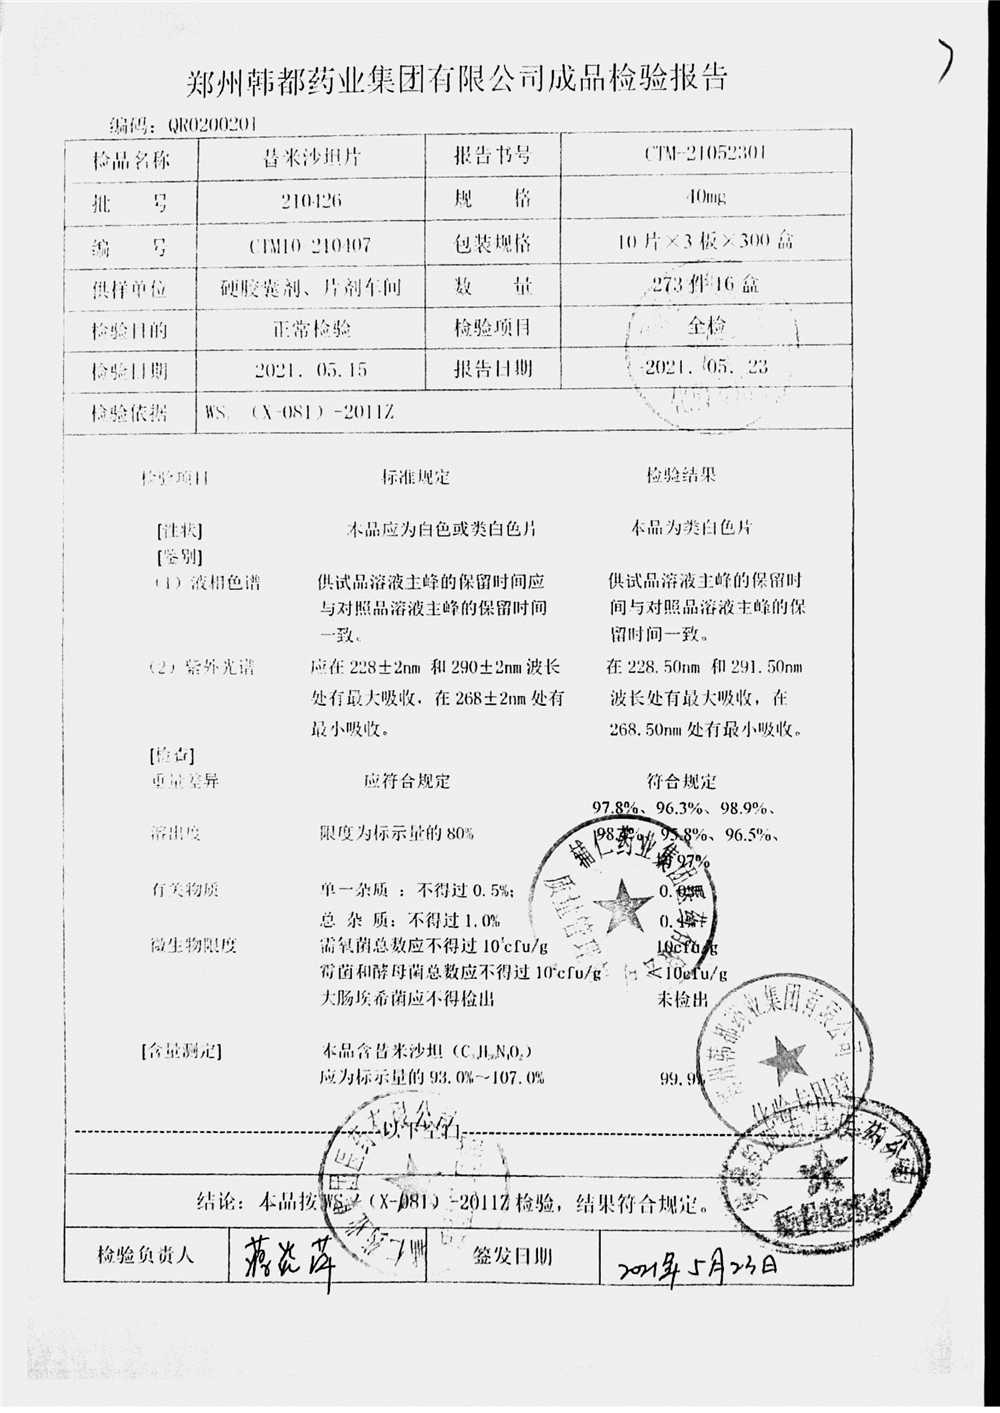 郑州韩都药业集团有限公司成品检验报告
编码：QR0200201
检品名称 替米沙坦片 报告书号 CTM-21052301
批 号 210426 规 格 40mg
编 号 CTM10-210407 包装规格 10片×3板×300盒
供样单位 硬胶囊剂、片剂车间 数 量 273件16盒
检验目的 正常检验 检验项目 全检
检验日期 2021. 05.15 报告日期 2021. 05. 23
检验依据 WS (X-081) -2011Z
检验项目 标准规定 检验结果
[性状] 本品应为白色或类白色片 本品为类白色片
[鉴别]
(1) 液相色谱 供试品溶液主峰的保留时间应 供试品溶液主峰的保留时
与对照品溶液主峰的保留时间 间与对照品溶液主峰的保
一致。 留时间一致。
(2) 紫外光谱 应在228±2nm 和290±2nm波长 在228.50nm 和291.50nm
处有最大吸收，在268±2nm处有 波长处有最大吸收，在
最小吸收。 268.50nm处有最小吸收。
[检查]
重量差异 应符合规定 符合规定
97.8%、96.3%、98.9%、
溶出度 限度为标示量的80% 95.8%、96.5%、
97%
有关物质 单一杂质 ：不得过0.5%；
总 杂 质：不得过1.0%
微生物限度 需氧菌总数应不得过10³cfu/g 10cfu/g
霉菌和酵母菌总数应不得过10²cfu/g <10cfu/g
大肠埃希菌应不得检出 未检出
[含量测定] 本品含替米沙坦
应为标示量的93.0%～107.0% 99.9%
以下空白
结论：本品按WS (X-081) -2011Z检验，结果符合规定。
检验负责人 签发日期 2021年5月23日
辅仁药业集团医药有限公司
质量管理
郑州韩都药业集团有限公司
化验专用章